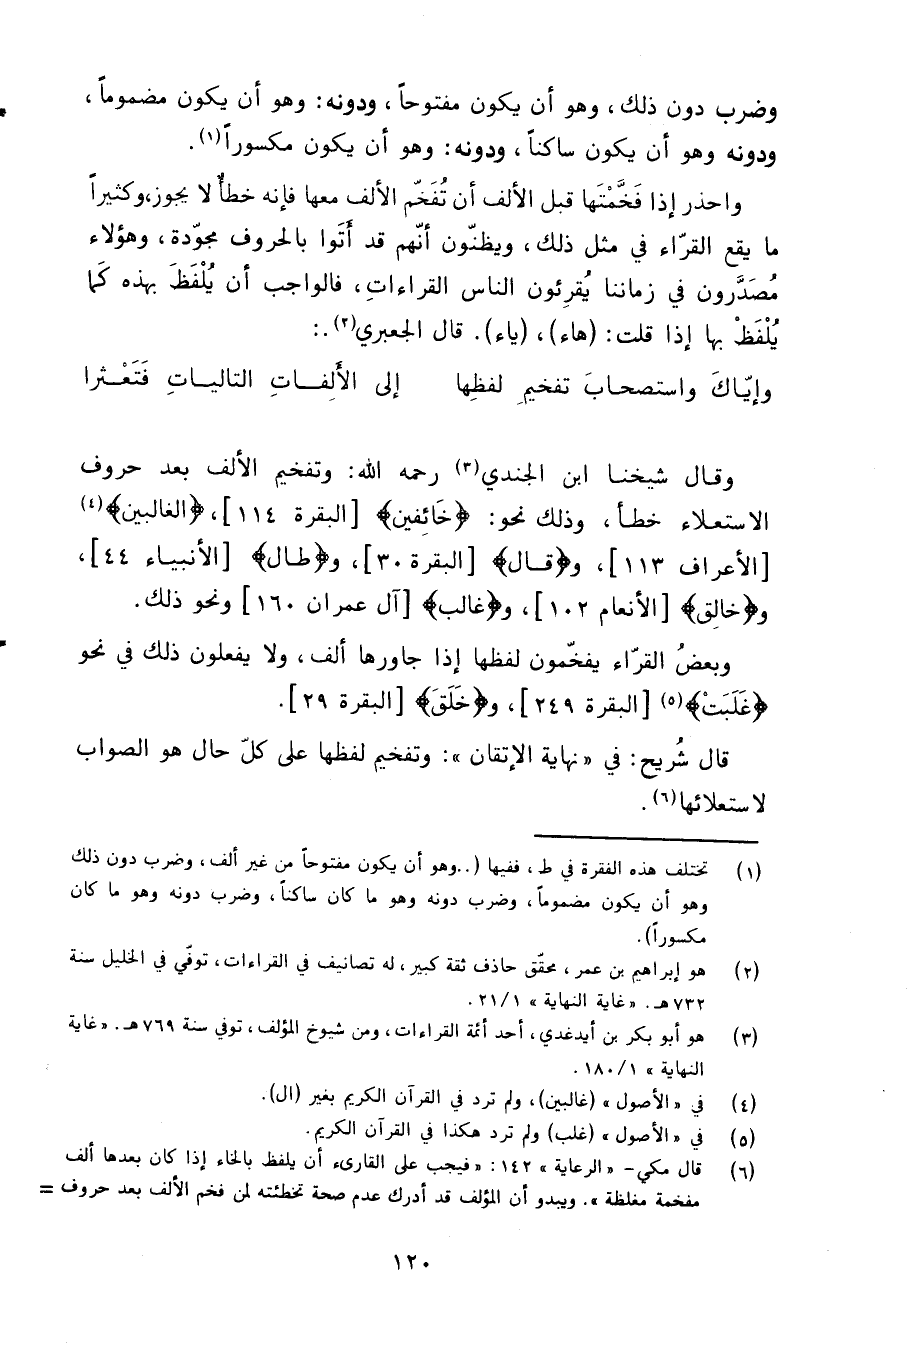 وضرب دون ذلك، وهو أن يكون مفتوحاً، ودونه: وهو أن يكون مضموماً،
ودونه وهو أن يكون ساكناً، ودونه: وهو أن يكون مكسوراً(١).
واحذر إذا فَخَّمْتَها قبل الألف أن تُفَخّم الألف معها فإنه خطأٌ لا يجوز،وكثيراً
ما يقع القرّاء في مثل ذلك، ويظنّون أنّهم قد أَتَوا بالحروف مجوّدة، وهؤلاء
مُصَدَّرون في زماننا يُقرِئون الناس القراءاتِ، فالواجب أن يُلْفَظَ بهذه كَما
يُلْفَظْ بها إذا قلت: (هاء)، (ياء). قال الجعبري(٢).:
وإيّاكَ واستصحابَ تفخيمِ لفظِها إلى الأَلِفــاتِ التاليــاتِ فَتَعْــثرا
وقــال شيخنــا ابن الجندي(٣) رحمه الله: وتفخيم الألف بعد حروف
الاستعلاء خطأ، وذلك نحو: ﴿خَائفين﴾ [البقرة ١١٤]، ﴿الغالبين﴾(٤)
[الأعراف ١١٣]، و﴿قــال﴾ [البقرة ٣٠]، و﴿طــال﴾ [الأنبيــاء ٤٤]،
و﴿خالِق﴾ [الأنعام ١٠٢]، و﴿غالب﴾ [آل عمران ١٦٠] ونحو ذلك.
وبعضُ القرّاء يفخّمون لفظها إذا جاورها ألف، ولا يفعلون ذلك في نحو
﴿غَلَبَتْ﴾(٥) [البقرة ٢٤٩]، و﴿خَلَقَ﴾ [البقرة ٢٩].
قال شُريح: في « نهاية الإتقان »: وتفخيم لفظها على كلّ حال هو الصواب
لاستعلائها(٦).
(١) تختلف هذه الفقرة في ط، ففيها (..وهو أن يكون مفتوحاً من غير ألف، وضرب دون ذلك
وهو أن يكون مضموماً، وضرب دونه وهو ما كان ساكناً، وضرب دونه وهو ما كان
مكسوراً).
(٢) هو إبراهيم بن عمر، محقّق حاذف ثقة كبير، له تصانيف في القراءات، توفّي في الخليل سنة
٧٣٢ هـ. « غاية النهاية » ٢١/١.
(٣) هو أبو بكر بن أيدغدي، أحد أئمة القراءات، ومن شيوخ المؤلف، توفي سنة ٧٦٩ هـ. « غاية
النهاية » ١٨٠/١.
(٤) في « الأصول » (غالبين)، ولم ترد في القرآن الكريم بغير (ال).
(٥) في « الأصول » (غلب) ولم ترد هكذا في القرآن الكريم.
(٦) قال مكي- « الرعاية » ١٤٢: « فيجب على القارىء أن يلفظ بالخاء إذا كان بعدها ألف
مفخمة مغلظة ». ويبدو أن المؤلف قد أدرك عدم صحة تخطئته لمن فخم الألف بعد حروف =
١٢٠